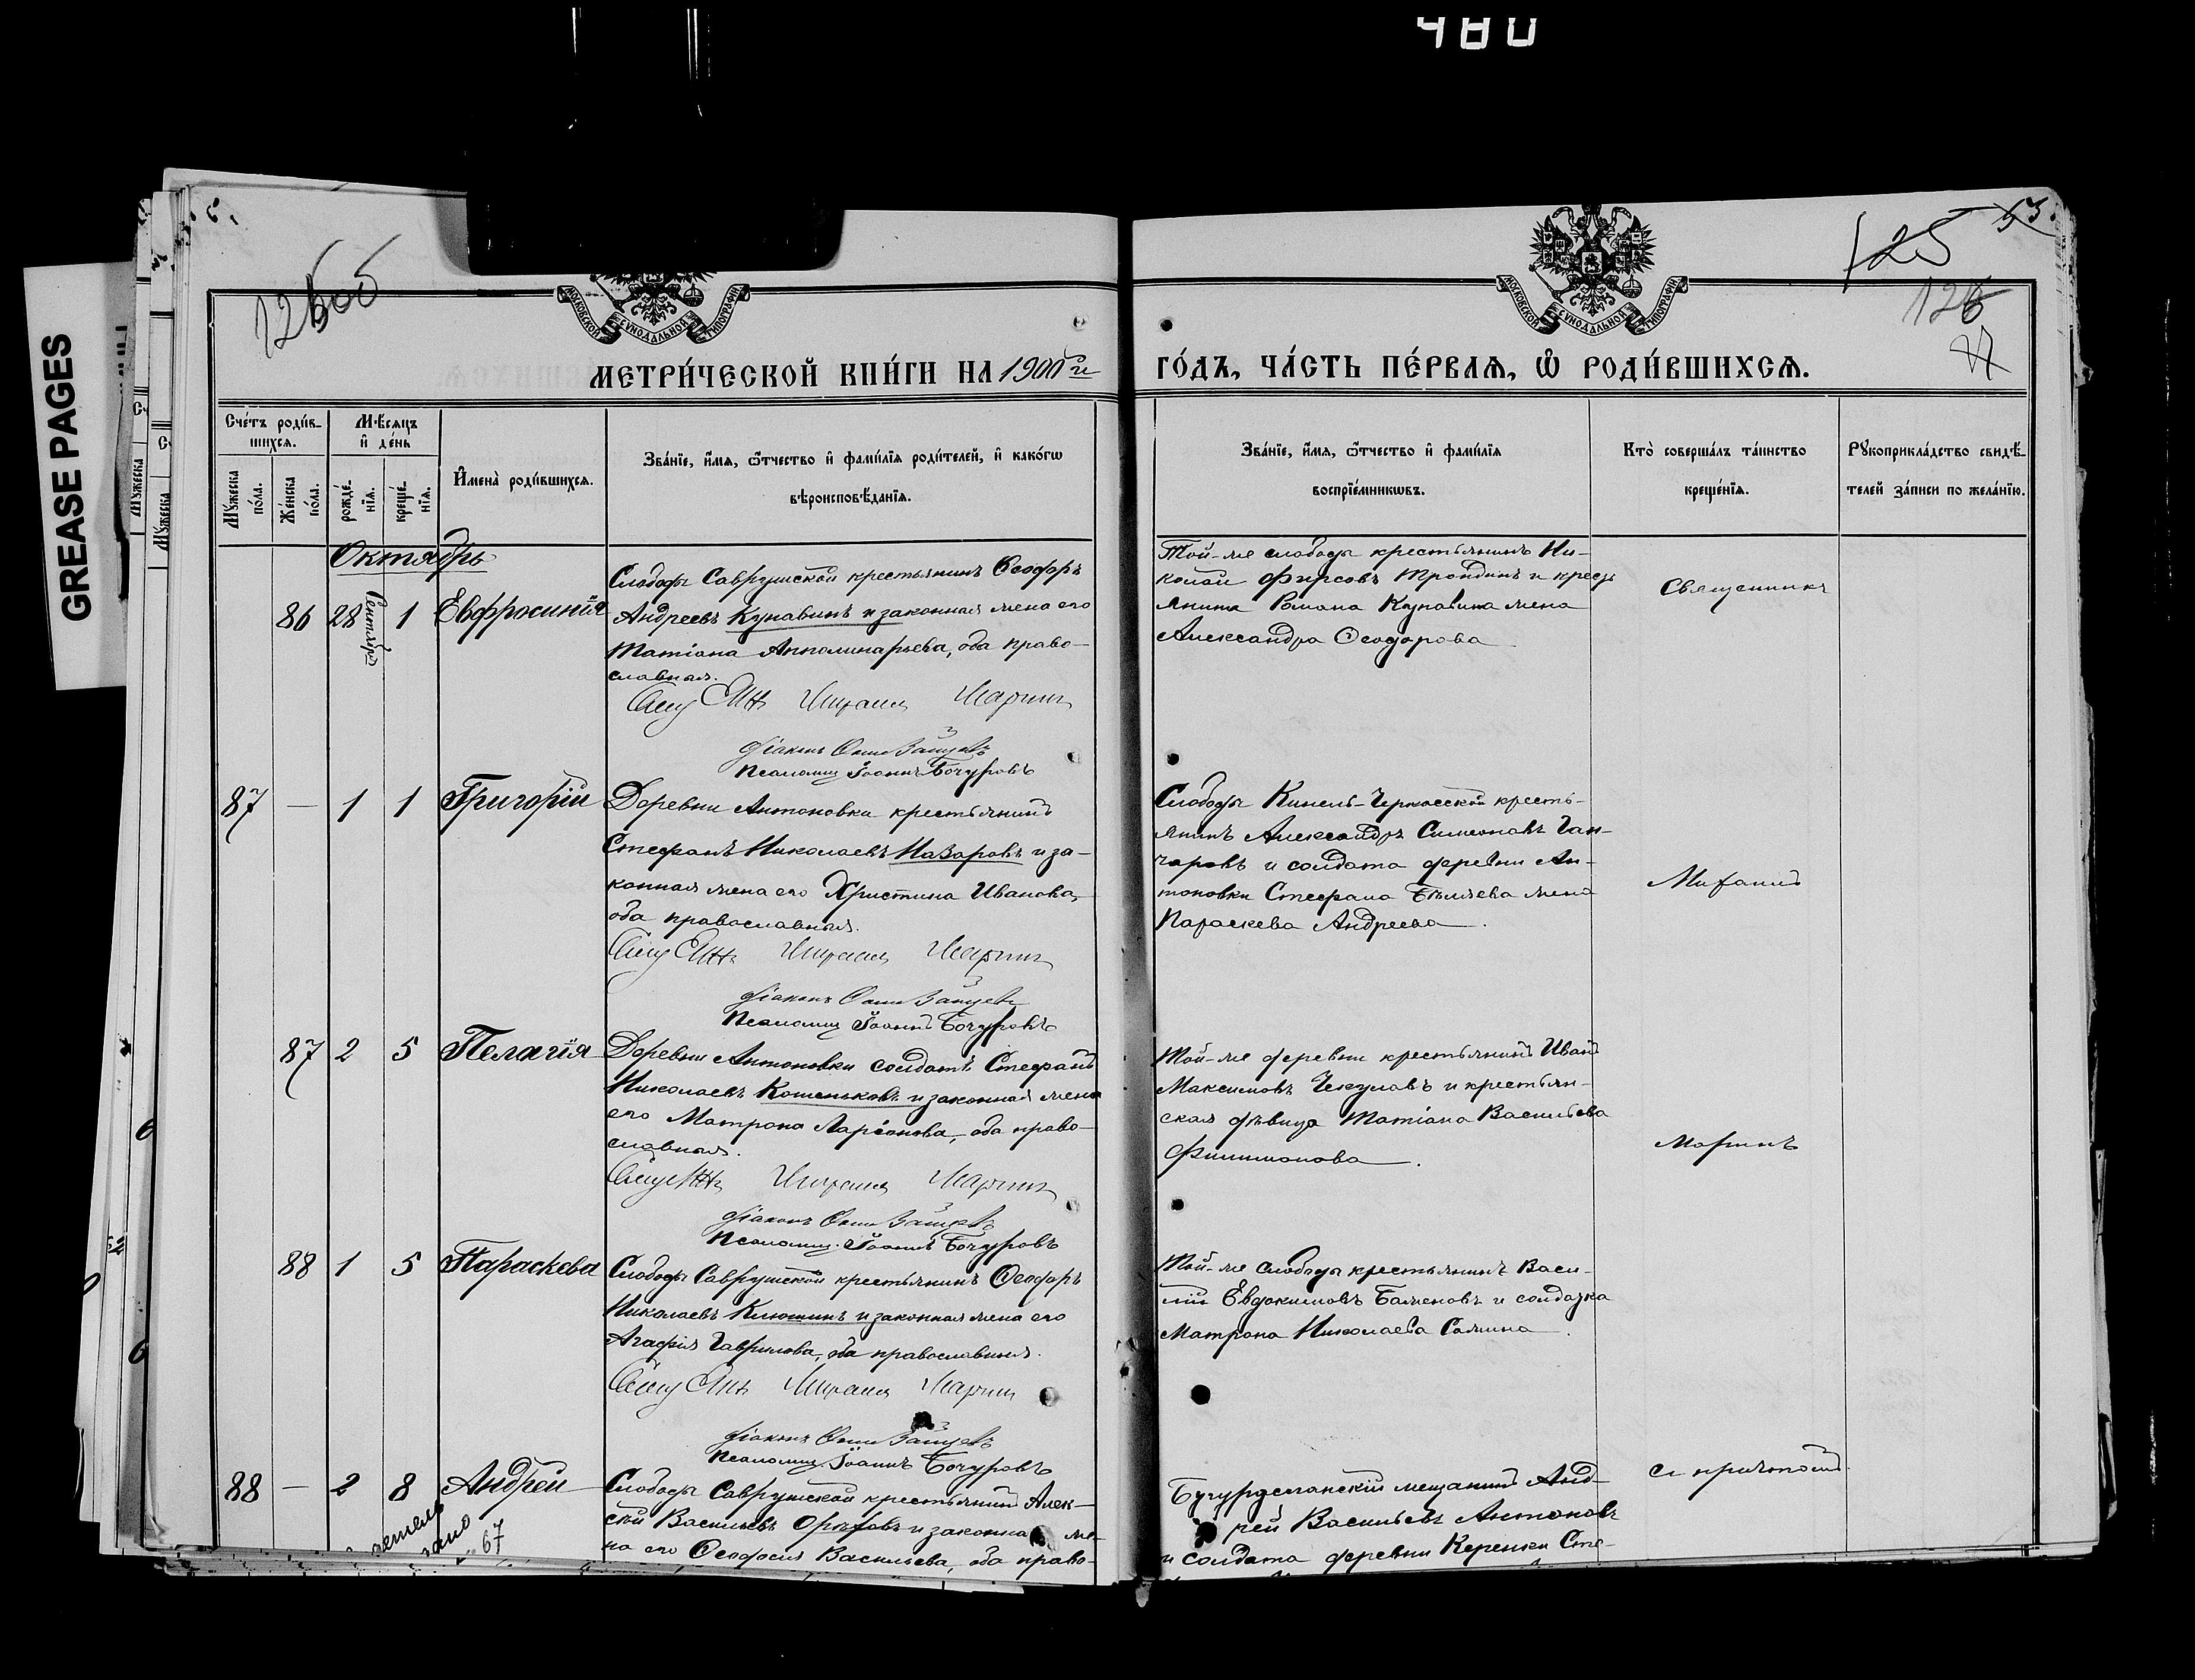 480
GREASE PAGES
125
53.
126
МОСКОВСКОЙ СѴНОДАЛЬНОЙ ТИПОГРАФІИ
МОСКОВСКОЙ СѴНОДАЛЬНОЙ ТИПОГРАФІИ
МЕТРИ́ЧЕСКОЙ КНИ́ГИ НА 1900й
ГО́ДЪ, ЧА́СТЬ ПЕ́РВАѦ, Ѽ РОДИ́ВШИХСѦ.
Сче́тъ роди́в-
шихсѧ.
Мѣ́сѧцъ
и҆ де́нь
Мꙋ́жеска по́ла.
Же́нска по́ла.
рожде́-
нїѧ.
креще́-
нїѧ.
И҆мена̀ роди́вшихсѧ.
Зва́нїе, и҆́мѧ, ѻ҆́тчество и҆ фами́лїѧ роди́телей, и҆ како́гѡ
вѣроисповѣ́данїѧ.
Зва́нїе, и҆́мѧ, ѻ҆́тчество и҆ фами́лїѧ
воспрїе́мникѡвъ.
Кто̀ соверша́лъ та́инство
креще́нїѧ.
Рꙋкоприкла́дство свидѣ́-
телей за́писи по жела́нїю.
Октябрь
86 28 Сентября 1 Евфросинія
Слободы Саврушской крестьянинъ Ѳеодоръ
Андреевъ Кунавинъ и законная жена его
Татіана Апполинарьева, оба право-
славные.
Свящ Михаилъ Маринъ
Діаконъ Зайцевъ
Псаломщ Іоаннъ Бочуровъ
Той-же слободы крестьянинъ Ни-
колай Фирсовъ Трондинъ и кресть
янина Романа Кунавина жена
Александра Ѳеодорова
Священникъ
87 — 1 1 Григорій
Деревни Антоновки крестьянинъ
Стефанъ Николаевъ Назаровъ и за-
конная жена его Христина Иванова,
оба православные.
Свящ Михаилъ Маринъ
Діаконъ Зайцевъ
Псаломщ Іоаннъ Бочуровъ
Слободы Кинель-Черкасской кресть-
янинъ Александръ Симеоновъ Ган-
чаровъ и солдата деревни Ан-
тоновки Стефана Бѣляева жена
Параскева Андреева.
Михаилъ
87 2 5 Пелагія
Деревни Антоновки солдатъ Стефанъ
Николаевъ Кошеньковъ и законная жена
его Матрона Ларіонова, оба право-
славные.
Свящ Михаилъ Маринъ
Діаконъ Зайцевъ
Псаломщ. Іоаннъ Бочуровъ
Той-же деревни крестьянинъ Иванъ
Максимовъ Чекулавъ и крестьян-
ская дѣвица Татіана Васильева
Филимонова.
Маринъ
88 1 5 Параскева
Слободы Саврушской крестьянинъ Ѳеодоръ
Николаевъ Клюшинъ и законная жена его
Агафія Гаврилова, оба православные.
Свящ Михаилъ Маринъ
Діаконъ Зайцевъ
Псаломщ Іоаннъ Бочуровъ
Той-же слободы крестьянинъ Васи-
лій Евдокимовъ Баженовъ и солдатка
Матрона Николаева Сомина.
88 — 2 8 Андрей
Слободы Саврушской крестьянинъ Алек-
сѣй Васильевъ Орѣховъ и законная же-
на его Ѳеодосія Васильева, оба право-
Бугурусланскій мещанинъ Анд-
рей Васильевъ Антоновъ
и солдата деревни Керенки Сте-
съ причтомъ.
67